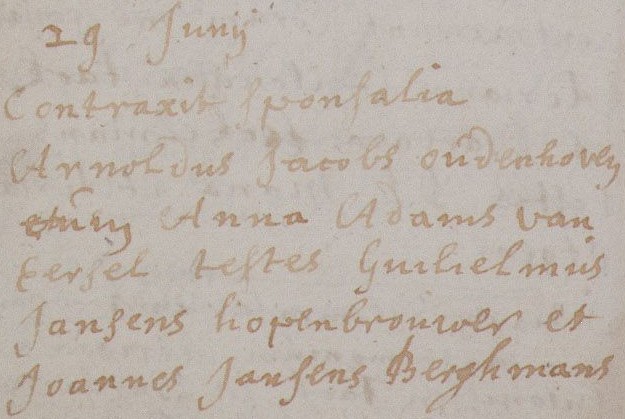 29 Junij
Contraxit sponsalia
Arnoldus Jacobs oudenhoven
cum Anna Adams van
Eersel testes Guilielmus
Jansens hopenbrouwer et
Joannes Jansens Berghmans